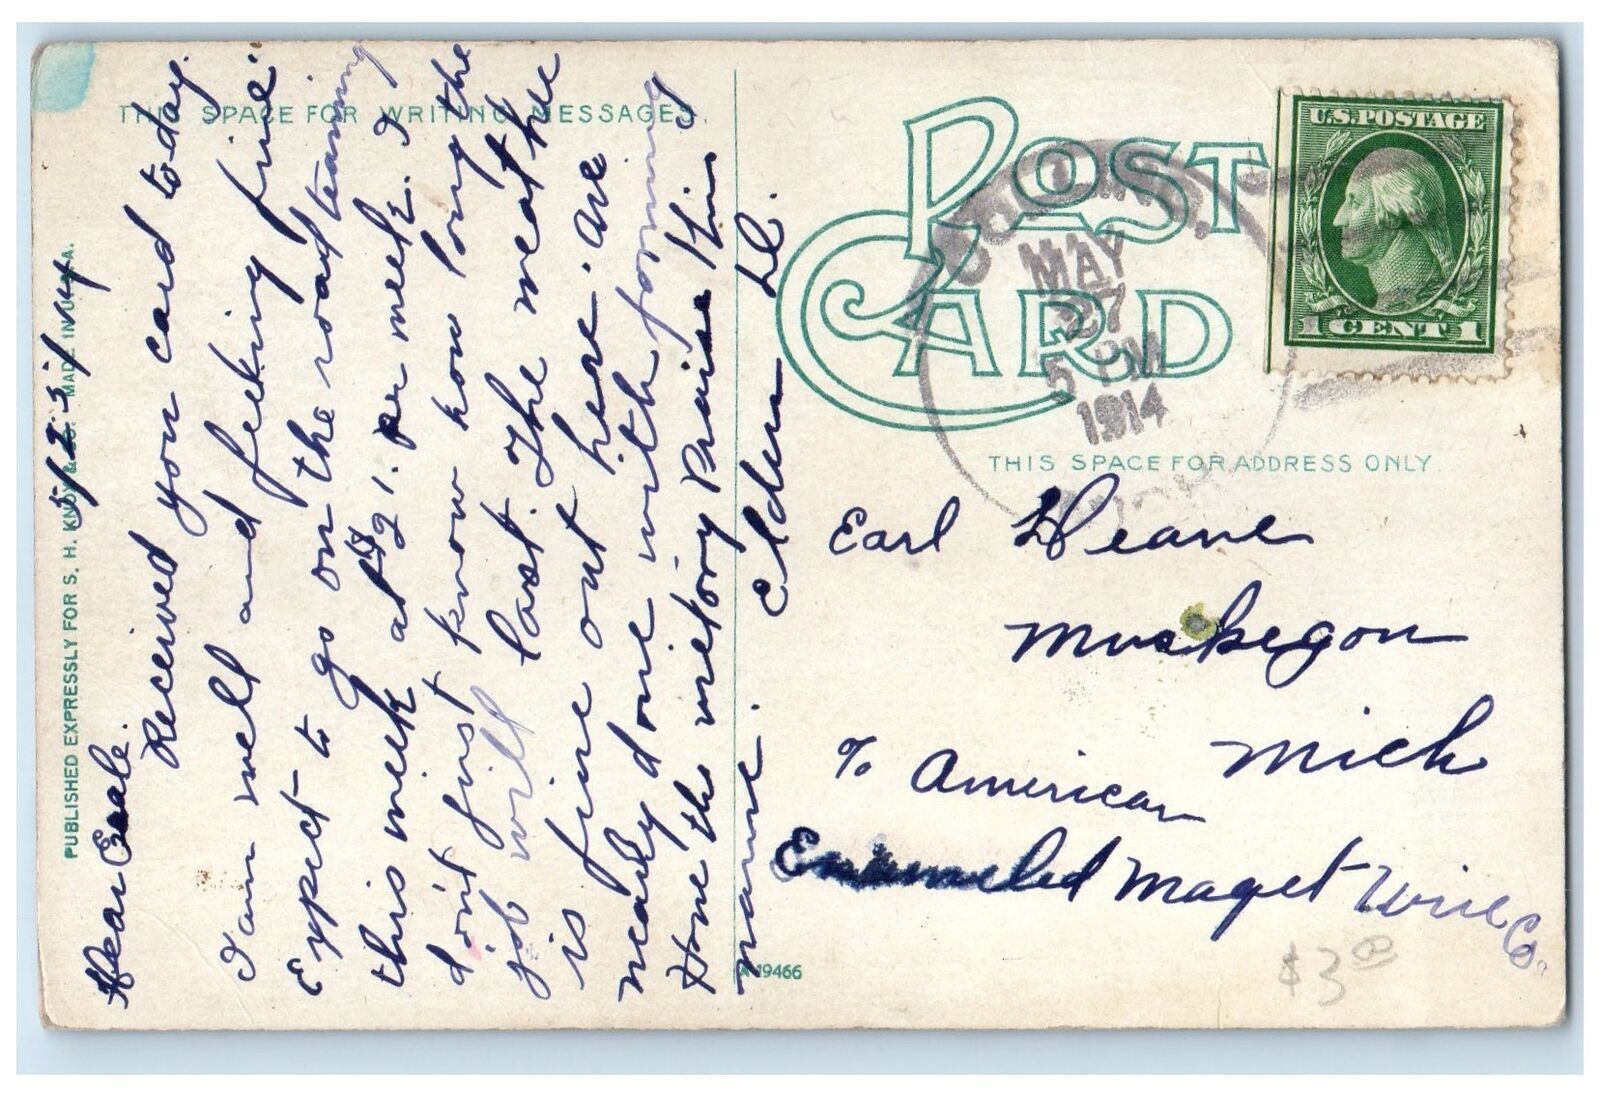 PUBLISHED EXPRESSLY FOR S. H. KNOX & CO. MADE IN U.S.A.
THIS SPACE FOR WRITING MESSAGES.
5/23/14
Dear Earle.
Received you card to day.
I am well and feeling fine.
Expect to go on the road teaming
this week at $21. per week. I
don't just know how long the
job will last. The weathe
is fine out here. Are
nearly done with farming
Home the Prairie this
name. Elden D.
A 19466
POST CARD
U.S. POSTAGE
1 CENT 1
MAY
27
5 PM
1914
THIS SPACE FOR ADDRESS ONLY.
Earl Deane
Muskegon
Mich
c/o American
Enameled Maget Wire Co.
$3.00